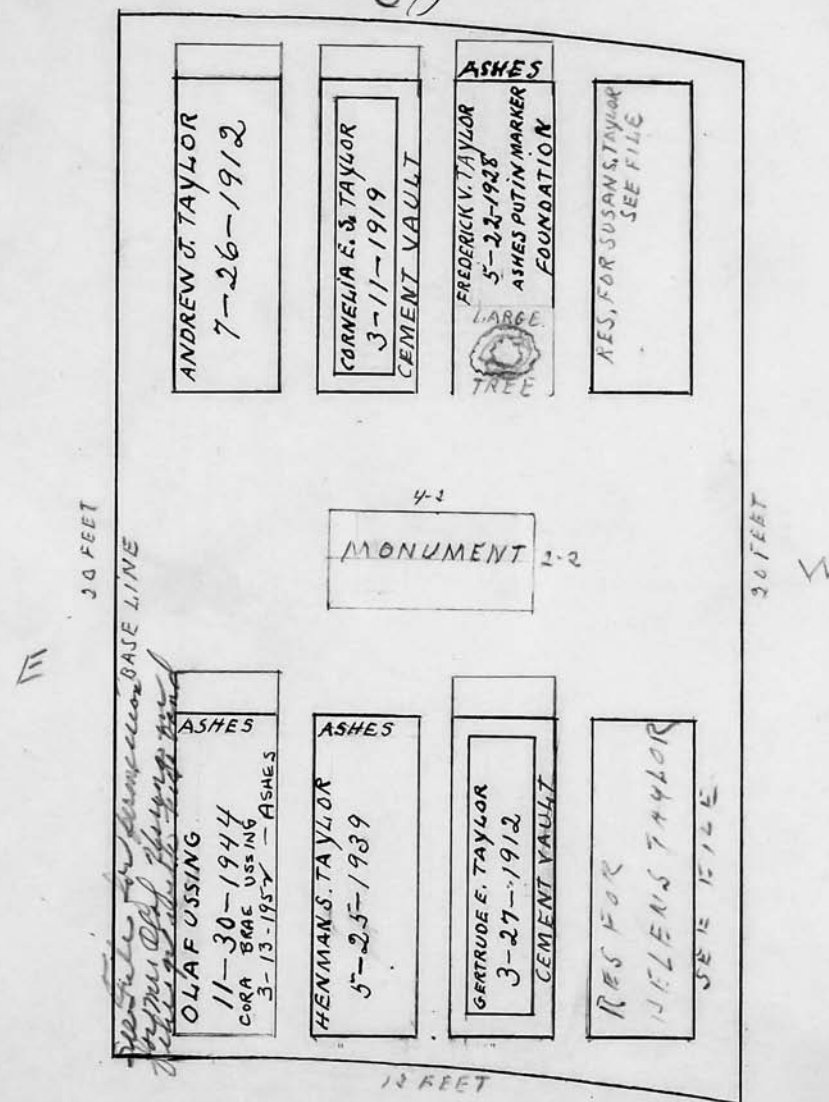 ANDREW J. TAYLOR
7-26-1912
CORNELIA E. S. TAYLOR
3-11-1919
CEMENT VAULT
ASHES
FREDERICK V. TAYLOR
5-22-1928
ASHES PUT IN MARKER
FOUNDATION
LARGE
TREE
RES. FOR SUSAN S. TAYLOR
SEE FILE
20 FEET
BASE LINE
4-2
MONUMENT
2-2
20 FEET
E
ASHES
OLAF USSING
11-30-1944
CORA BRAE USSING
3-13-1952 - ASHES
ASHES
HENMAN S. TAYLOR
5-25-1939
GERTRUDE E. TAYLOR
3-27-1912
CEMENT VAULT
RES FOR
HELEN S TAYLOR
SEE FILE
12 FEET